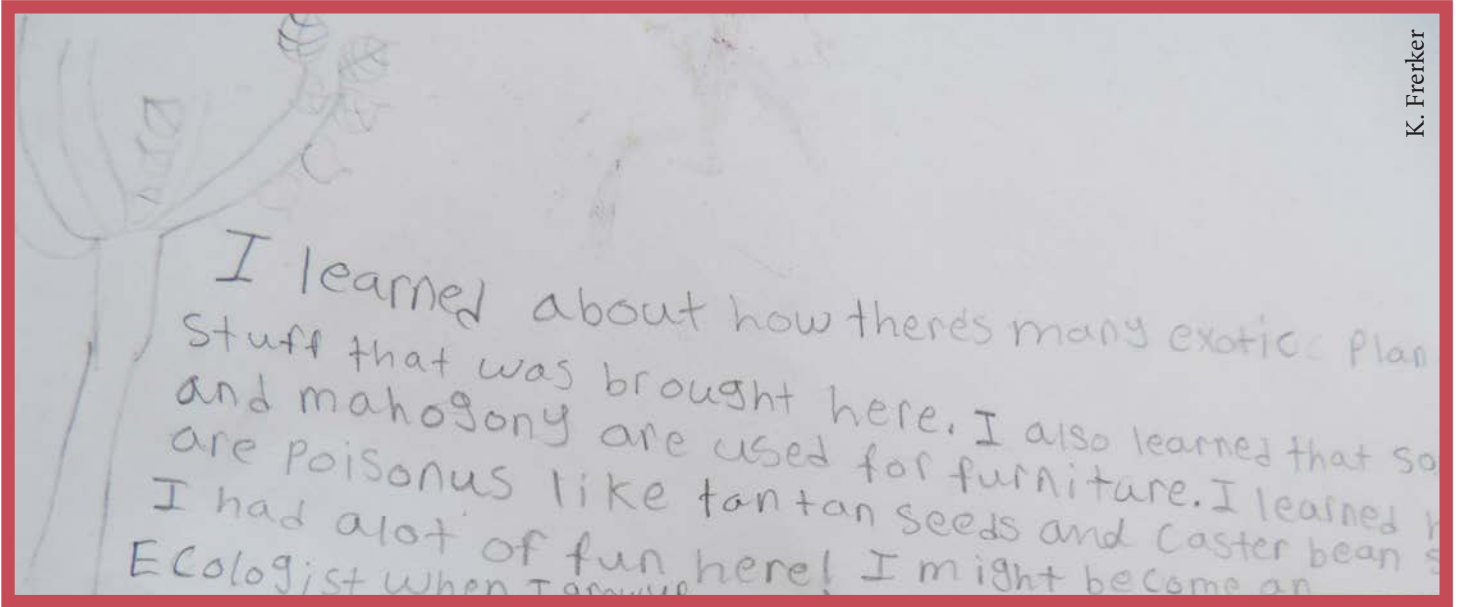 K. Frerker
I learned about how there's many exotic plan
Stuff that was brought here. I also learned that so
and mahogony are used for furniture. I learned h
are poisonus like tan tan seeds and Caster bean s
I had alot of fun here! I might become an
Ecologist when I